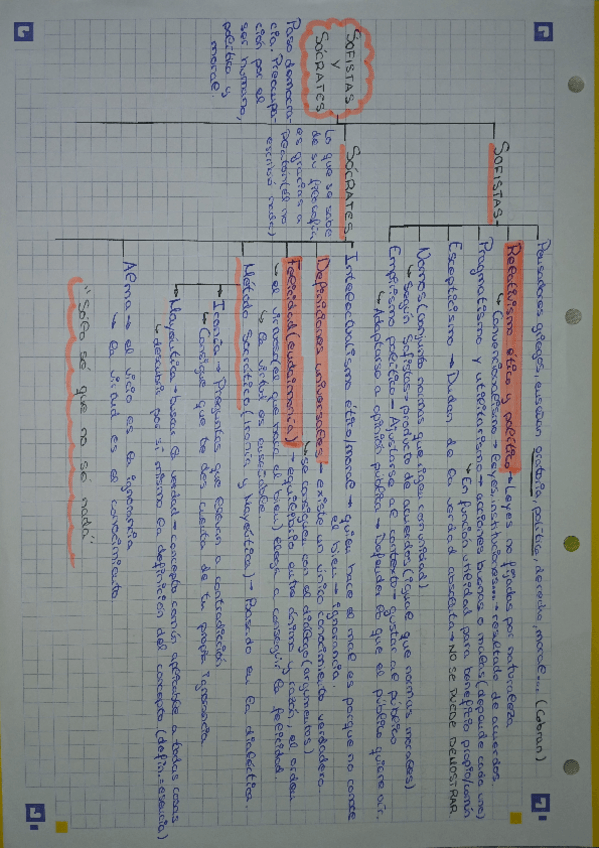 SOFISTAS
Y
SÓCRATES
Paso democra-
cia. Preocupa-
ción por el
ser humano,
política y
moral.
SOFISTAS
Pensadores griegos, enseñan oratoria, política, derecho, moral... (Cobran)
Relativismo ético y político → Leyes no fijadas por naturaleza
↳ Convencionalismo → leyes, instituciones... → resultado de acuerdos.
Pragmatismo y utilitarismo → acciones buenas o malas (depende cada uno)
↳ En función utilidad para beneficio propio/común
Escepticismo → Dudan de la verdad absoluta → NO SE PUEDE DEMOSTRAR
Nomos (Conjunto normas que rigen comunidad)
↳ Según sofistas → producto de acuerdos (igual que normas morales)
Empirismo político → Ajustarse al contexto → gustar al público
↳ Adaptarse a opinión pública → Defender lo que el público quiere oír.
SÓCRATES
Lo que se sabe
de su filosofía
es gracias a
Platón (él no
escribió nada)
Intelectualismo ético/moral → quien hace el mal es porque no conoce
el bien → ignorancia
Definiciones universales → existe un único conocimiento verdadero
↳ se consiguen con el diálogo (argumentos)
Felicidad (eudaimonía) → equilibrio entre ánimo y razón, el orden
↳ el virtuoso (el que hace el bien) llega a conseguir la felicidad
↳ la virtud es enseñable.
Método Socrático (Ironía y Mayéutica) → Basado en la dialéctica.
Ironía → Preguntas que llevan a contradicción
↳ Consigue que te des cuenta de tu propia ignorancia
Mayéutica → buscar la verdad → concepto común aplicable a todas cosas
↳ descubrir por sí mismo la definición del concepto (defin.=esencia)
Alma → el vicio es la ignorancia
↳ la virtud es el conocimiento.
"Sólo sé que no sé nada"